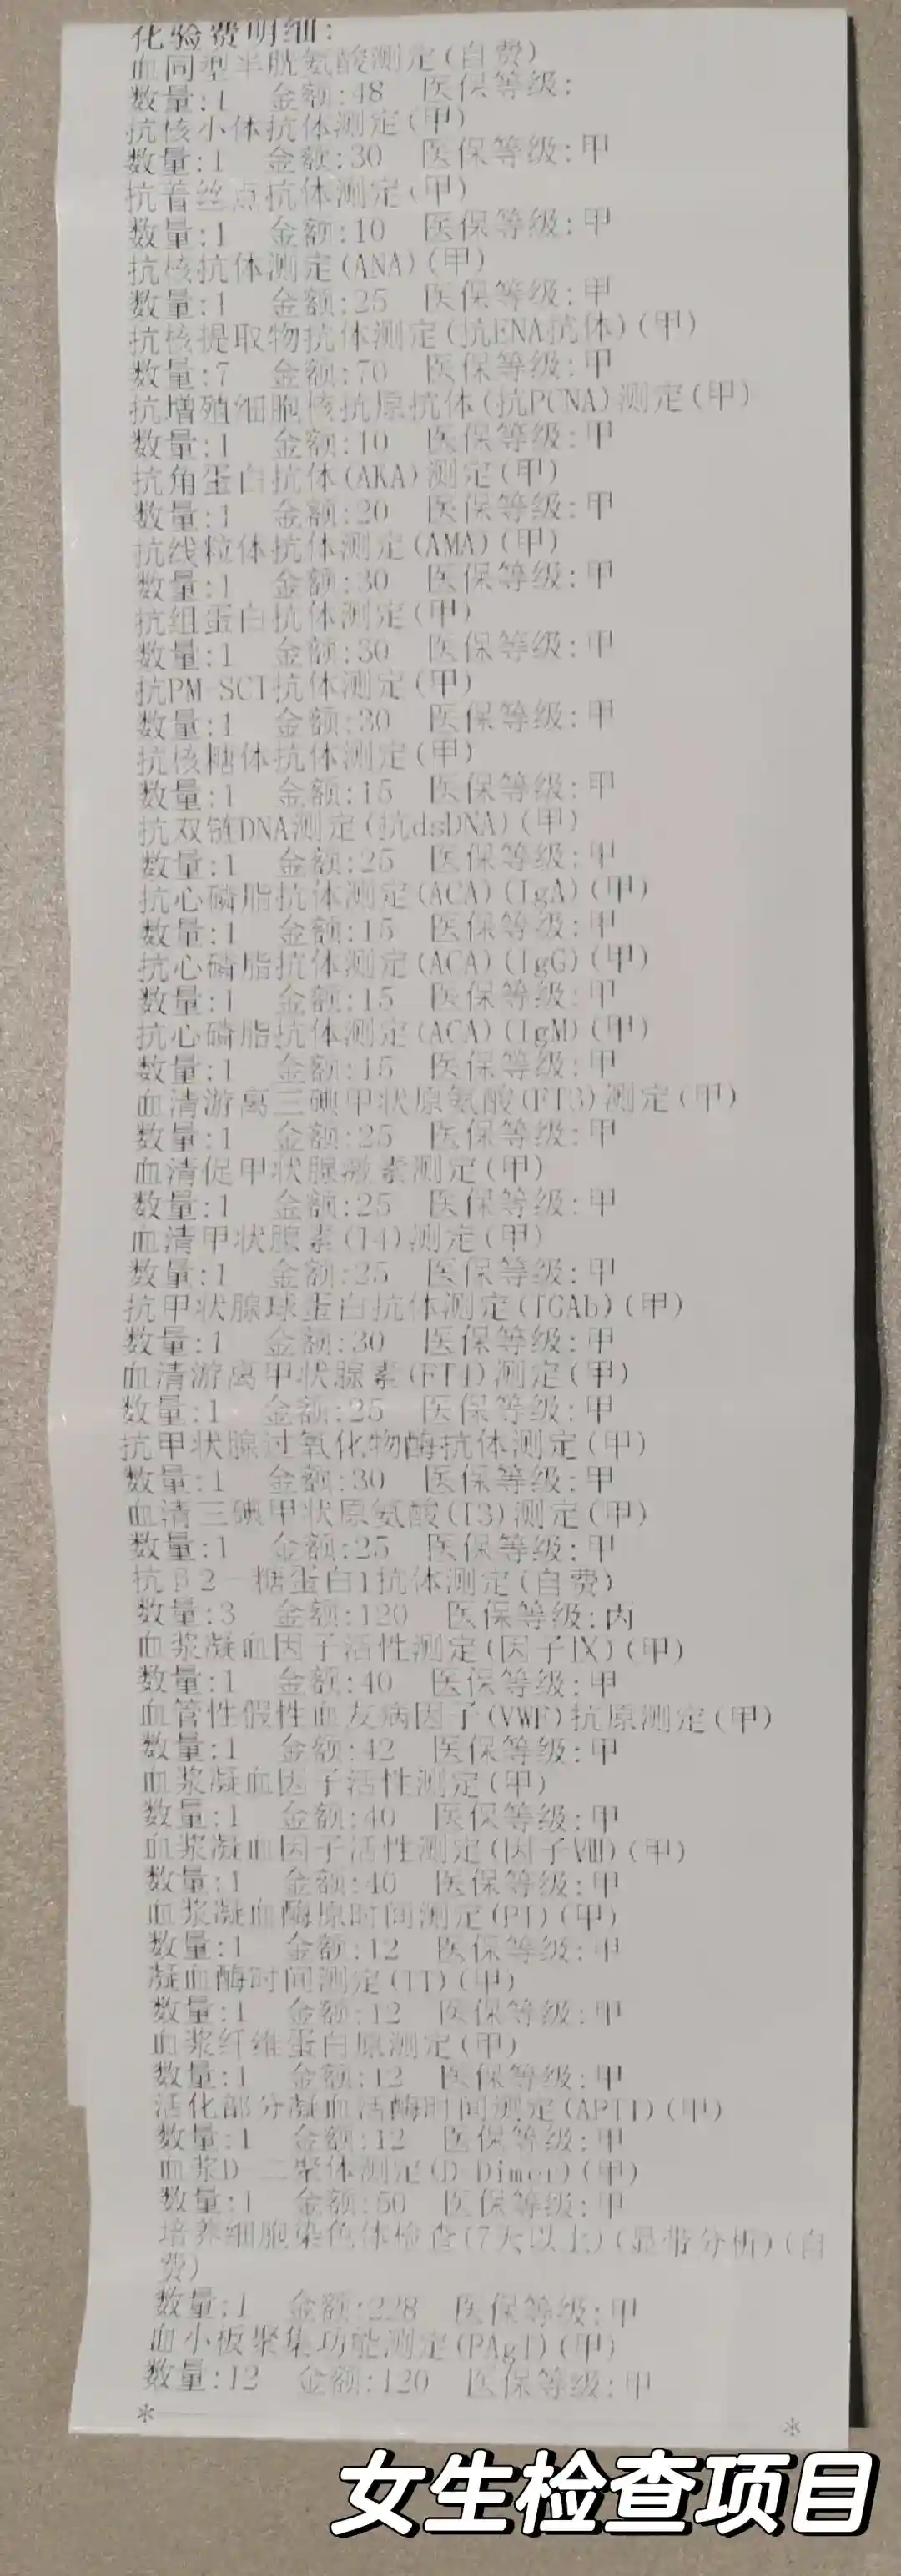 化验费明细:
血同型半胱氨酸测定(自费)
数量:1 金额:48 医保等级:
抗核小体抗体测定(甲)
数量:1 金额:30 医保等级:甲
抗着丝点抗体测定(甲)
数量:1 金额:10 医保等级:甲
抗核抗体测定(ANA)(甲)
数量:1 金额:25 医保等级:甲
抗核提取物抗体测定(抗ENA抗体)(甲)
数量:7 金额:70 医保等级:甲
抗增殖细胞核抗原抗体(抗PCNA)测定(甲)
数量:1 金额:10 医保等级:甲
抗角蛋白抗体(AKA)测定(甲)
数量:1 金额:20 医保等级:甲
抗线粒体抗体测定(AMA)(甲)
数量:1 金额:30 医保等级:甲
抗组蛋白抗体测定(甲)
数量:1 金额:30 医保等级:甲
抗PM-SCI抗体测定(甲)
数量:1 金额:30 医保等级:甲
抗核糖体抗体测定(甲)
数量:1 金额:15 医保等级:甲
抗双链DNA测定(抗dsDNA)(甲)
数量:1 金额:25 医保等级:甲
抗心磷脂抗体测定(ACA)(IgA)(甲)
数量:1 金额:15 医保等级:甲
抗心磷脂抗体测定(ACA)(IgG)(甲)
数量:1 金额:15 医保等级:甲
抗心磷脂抗体测定(ACA)(IgM)(甲)
数量:1 金额:15 医保等级:甲
血清游离三碘甲状原氨酸(FT3)测定(甲)
数量:1 金额:25 医保等级:甲
血清促甲状腺激素测定(甲)
数量:1 金额:25 医保等级:甲
血清甲状腺素(T4)测定(甲)
数量:1 金额:25 医保等级:甲
抗甲状腺球蛋白抗体测定(TGAb)(甲)
数量:1 金额:30 医保等级:甲
血清游离甲状腺素(FT4)测定(甲)
数量:1 金额:25 医保等级:甲
抗甲状腺过氧化物酶抗体测定(甲)
数量:1 金额:30 医保等级:甲
血清三碘甲状原氨酸(T3)测定(甲)
数量:1 金额:25 医保等级:甲
抗β2一糖蛋白1抗体测定(自费)
数量:3 金额:120 医保等级:丙
血浆凝血因子活性测定(因子Ⅸ)(甲)
数量:1 金额:40 医保等级:甲
血管性假性血友病因子(VWF)抗原测定(甲)
数量:1 金额:42 医保等级:甲
血浆凝血因子活性测定(甲)
数量:1 金额:40 医保等级:甲
血浆凝血因子活性测定(因子Ⅷ)(甲)
数量:1 金额:40 医保等级:甲
血浆凝血酶原时间测定(PT)(甲)
数量:1 金额:12 医保等级:甲
凝血酶时间测定(TT)(甲)
数量:1 金额:12 医保等级:甲
血浆纤维蛋白原测定(甲)
数量:1 金额:12 医保等级:甲
活化部分凝血活酶时间测定(APTT)(甲)
数量:1 金额:12 医保等级:甲
血浆D-二聚体测定(D-Dimer)(甲)
数量:1 金额:50 医保等级:甲
培养细胞染色体检查(7天以上)(显带分析)(自
费)
数量:1 金额:228 医保等级:甲
血小板聚集功能测定(PAgT)(甲)
数量:12 金额:120 医保等级:甲
* *
女生检查项目